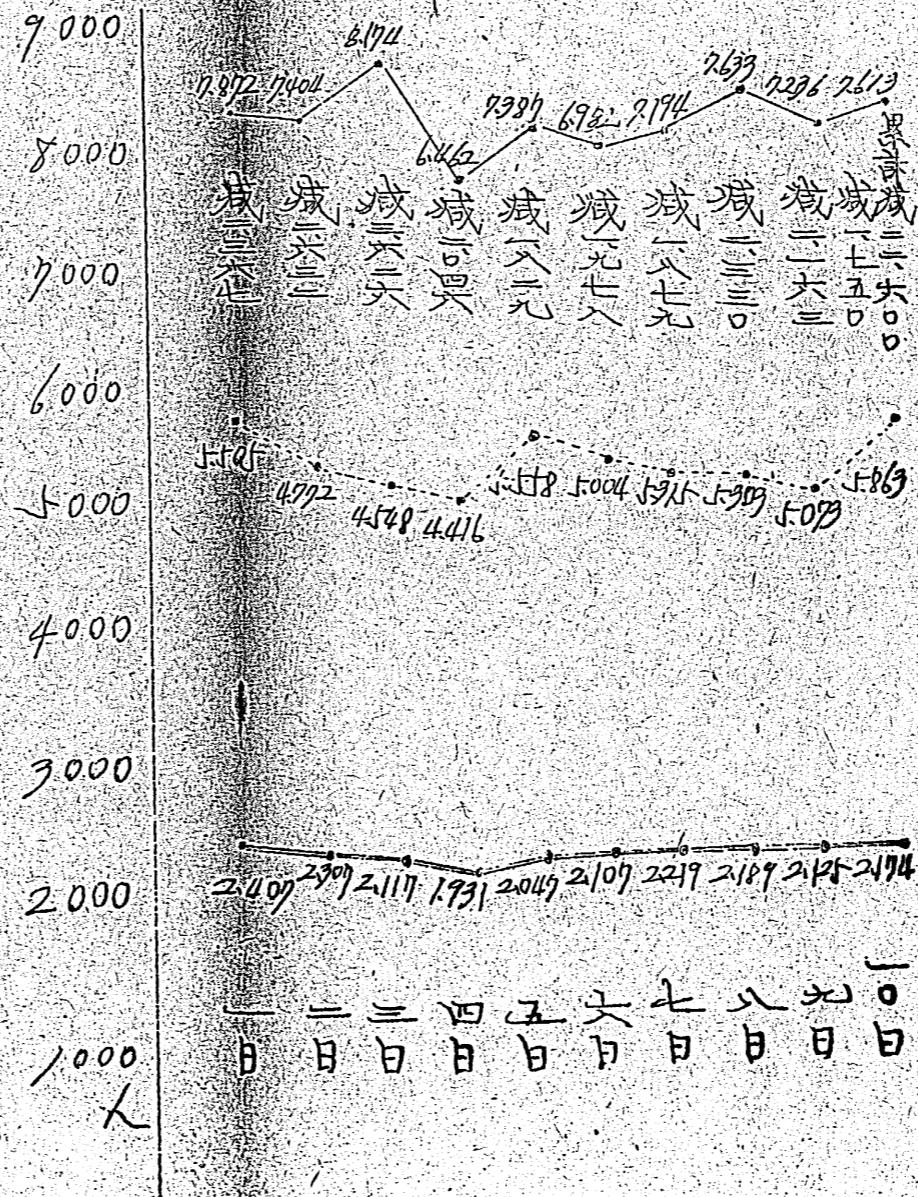 9000
8000
7000
6000
5000
4000
3000
2000
1000
人
7.872 7.404 8.174 6.462 7.387 7.194 7.633 7.236 7.613
減二三六七
減二六三二
減三六二六
減二〇四六
減一八二九
減一九七八
減一八七九
減二三三〇
減二一六三
減一七五〇
累計減二二六〇〇
5.505 4.772 4.548 4.416 5.558 5.004 5.315 5.303 5.073 5.863
2.407 2.307 2.117 1.931 2.047 2.107 2.219 2.189 2.125 2.174
一日 二日 三日 四日 五日 六日 七日 八日 九日 一〇日